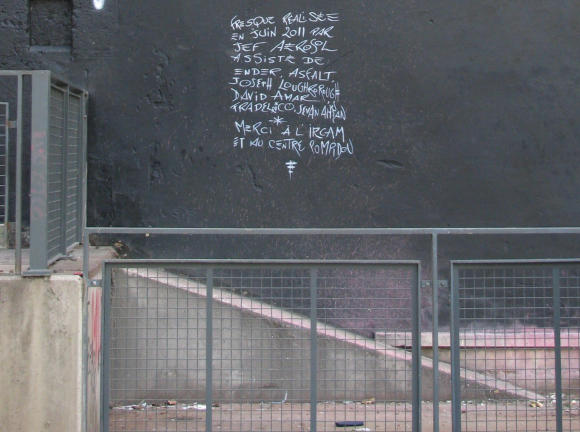 FRESQUE REALISEE
EN JUIN 2011 PAR
JEF AEROSOL
ASSISTE DE
ENDER, ASFALT
JOSEPH LOUGHBOROUGH
DAVID AMAR
TRADELICO.
MERCI A L'IRCAM
ET AU CENTRE POMPIDOU